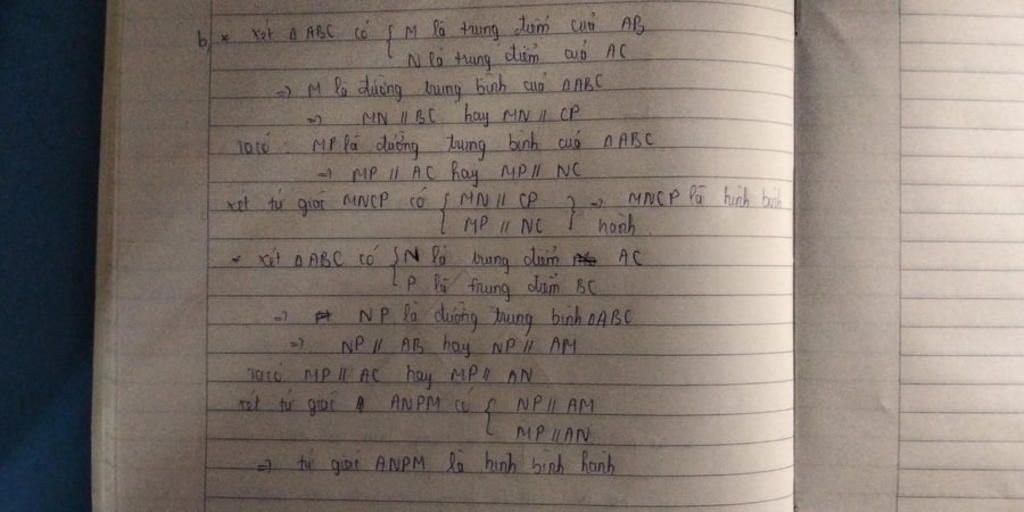 b, * Xét △ABC có { M là trung điểm của AB
N là trung điểm của AC
=> M là đường trung bình của △ABC
=> MN // BC hay MN // CP
Ta có: MP là đường trung bình của △ABC
=> MP // AC hay MP // NC
Xét tứ giác MNCP có { MN // CP } => MNCP là hình bình
MP // NC hành.
* Xét △ABC có { N là trung điểm AC
P là trung điểm BC
=> NP là đường trung bình △ABC
=> NP // AB hay NP // AM
Ta có MP // AC hay MP // AN
Xét tứ giác ANPM có { NP // AM
MP // AN
=> tứ giác ANPM là hình bình hành